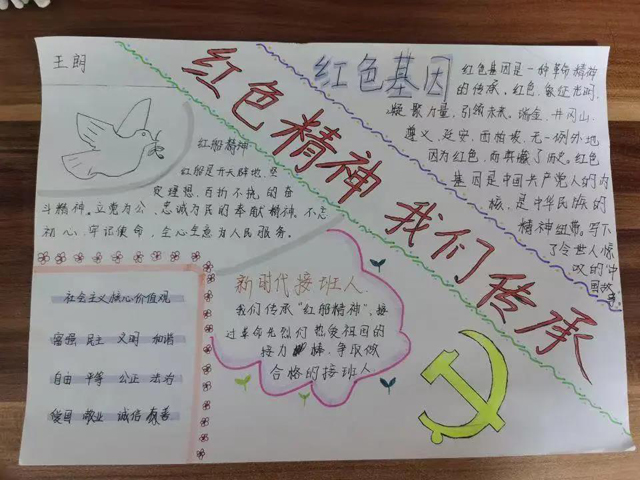 王朗
红色精神 我们传承
红船精神
红船是开天辟地、坚
定理想、百折不挠的奋
斗精神。立党为公、忠诚为民的奉献精神。不忘
初心、牢记使命，全心全意为人民服务。
红色基因
红色基因是一种革命精神
的传承。红色，象征光明，
凝聚力量，引领未来。瑞金、井冈山、
遵义、延安、西柏坡，无一例外地
因为红色，而载入了历史。红色
基因是中国共产党人的内
核，是中华民族的
精神纽带。写下
了令世人惊
叹的中
国故事
社会主义核心价值观
富强 民主 文明 和谐
自由 平等 公正 法治
爱国 敬业 诚信 友善
新时代接班人
我们传承“红船精神”，接
过革命先烈们热爱祖国的
接力棒，争取做
合格的接班人